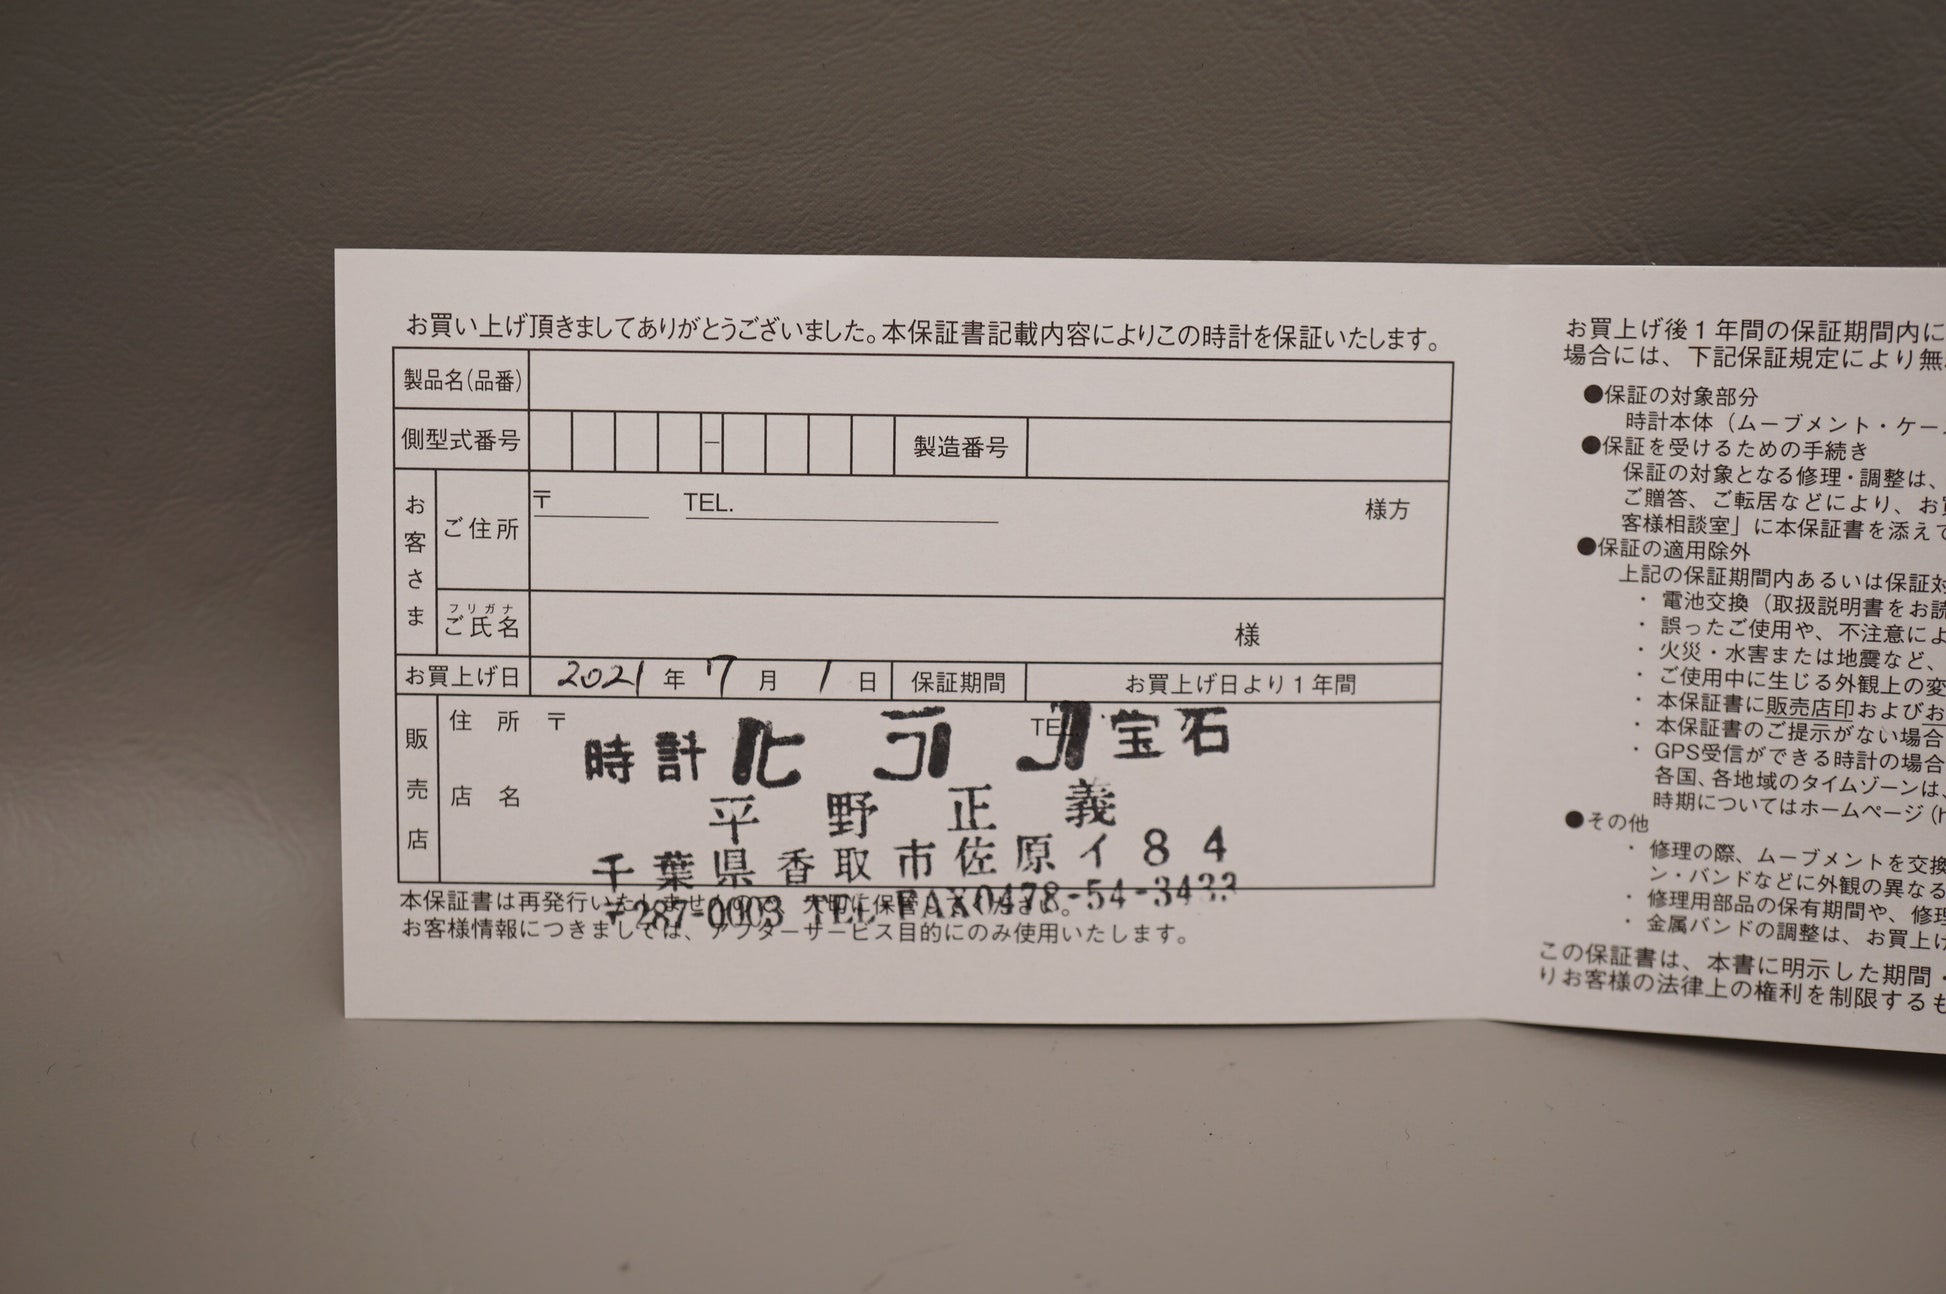 お買い上げ頂きましてありがとうございました。本保証書記載内容によりこの時計を保証いたします。
製品名(品番)
側型式番号 － 製造番号
お客さま
ご住所 〒 TEL. 様方
フリガナ
ご氏名 様
お買上げ日 2021年 7月 1日 保証期間 お買上げ日より1年間
販売店
住所 〒
時計 ヒラノ 宝石
店名
平野正義
千葉県香取市佐原イ84
〒287-0003 TEL FAX0478-54-3433
お客様情報につきましては、アフターサービス目的にのみ使用いたします。
お買上げ後1年間の保証期間内に
場合には、下記保証規定により無
●保証の対象部分
時計本体（ムーブメント・ケー
●保証を受けるための手続き
保証の対象となる修理・調整は、
ご贈答、ご転居などにより、お
客様相談室」に本保証書を添えて
●保証の適用除外
上記の保証期間内あるいは保証対
・電池交換（取扱説明書をお読
・誤ったご使用や、不注意によ
・火災・水害または地震など、
・ご使用中に生じる外観上の変
・本保証書に販売店印およびお
・本保証書のご提示がない場合
・GPS受信ができる時計の場合
各国、各地域のタイムゾーンは、
時期についてはホームページ(h
●その他
・修理の際、ムーブメントを交換
ン・バンドなどに外観の異なる
・修理用部品の保有期間や、修理
・金属バンドの調整は、お買上げ
この保証書は、本書に明示した期間・
りお客様の法律上の権利を制限するも